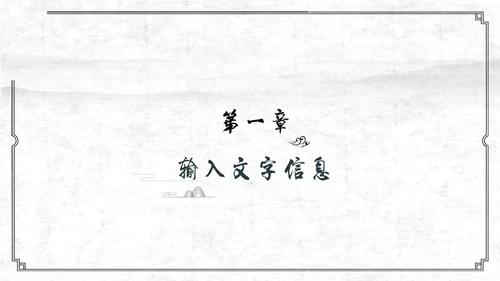 第一章
输入文字信息